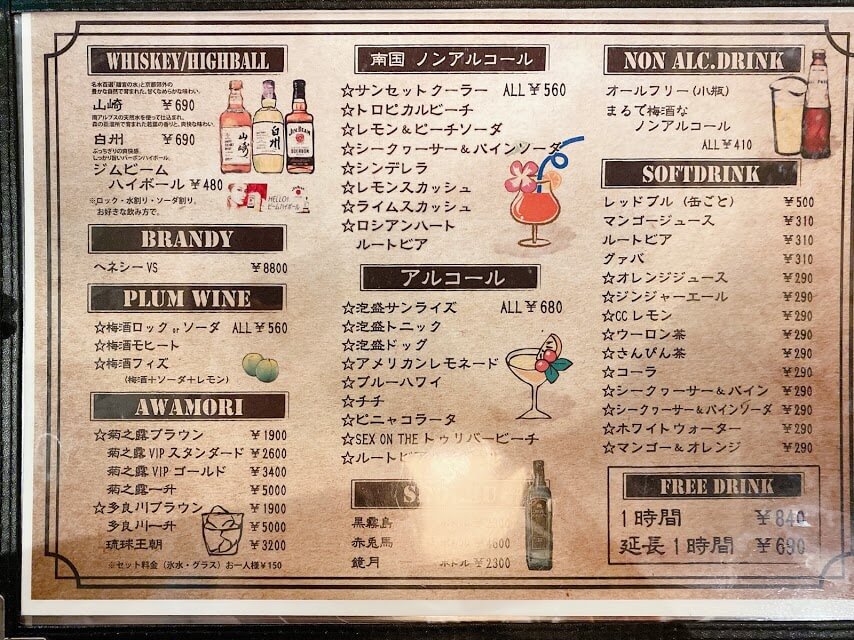 WHISKEY/HIGHBALL
山崎 ¥690
白州 ¥690
ジムビーム
ハイボール ¥480
※ロック・水割り・ソーダ割り、
お好きな飲み方で。
BRANDY
ヘネシーVS ¥8800
PLUM WINE
☆梅酒ロック or ソーダ ALL¥560
☆梅酒モヒート
☆梅酒フィズ
(梅酒+ソーダ+レモン)
AWAMORI
☆菊之露ブラウン ¥1900
菊之露VIPスタンダード ¥2600
菊之露VIPゴールド ¥3400
菊之露一升 ¥5000
☆多良川ブラウン ¥1900
多良川一升 ¥5000
琉球王朝 ¥3200
※セット料金(氷水・グラス)お一人様¥150
南国 ノンアルコール
☆サンセットクーラー ALL¥560
☆トロピカルビーチ
☆レモン&ピーチソーダ
☆シークヮーサー&パインソーダ
☆シンデレラ
☆レモンスカッシュ
☆ライムスカッシュ
☆ロシアンハート
ルートビア
アルコール
☆泡盛サンライズ ALL¥680
☆泡盛トニック
☆泡盛ドッグ
☆アメリカンレモネード
☆ブルーハワイ
☆チチ
☆ピニャコラータ
☆SEX ON THE トゥリバービーチ
☆ルートビア
黒霧島
赤兎馬
鏡月 ボトル ¥2300
NON ALC.DRINK
オールフリー(小瓶)
まるで梅酒な
ノンアルコール
ALL¥410
SOFTDRINK
レッドブル(缶ごと) ¥500
マンゴージュース ¥310
ルートビア ¥310
グァバ ¥310
☆オレンジジュース ¥290
☆ジンジャーエール ¥290
☆CCレモン ¥290
☆ウーロン茶 ¥290
☆さんぴん茶 ¥290
☆コーラ ¥290
☆シークヮーサー&パイン ¥290
☆シークヮーサー&パインソーダ ¥290
☆ホワイトウォーター ¥290
☆マンゴー&オレンジ ¥290
FREE DRINK
1時間 ¥840
延長1時間 ¥690